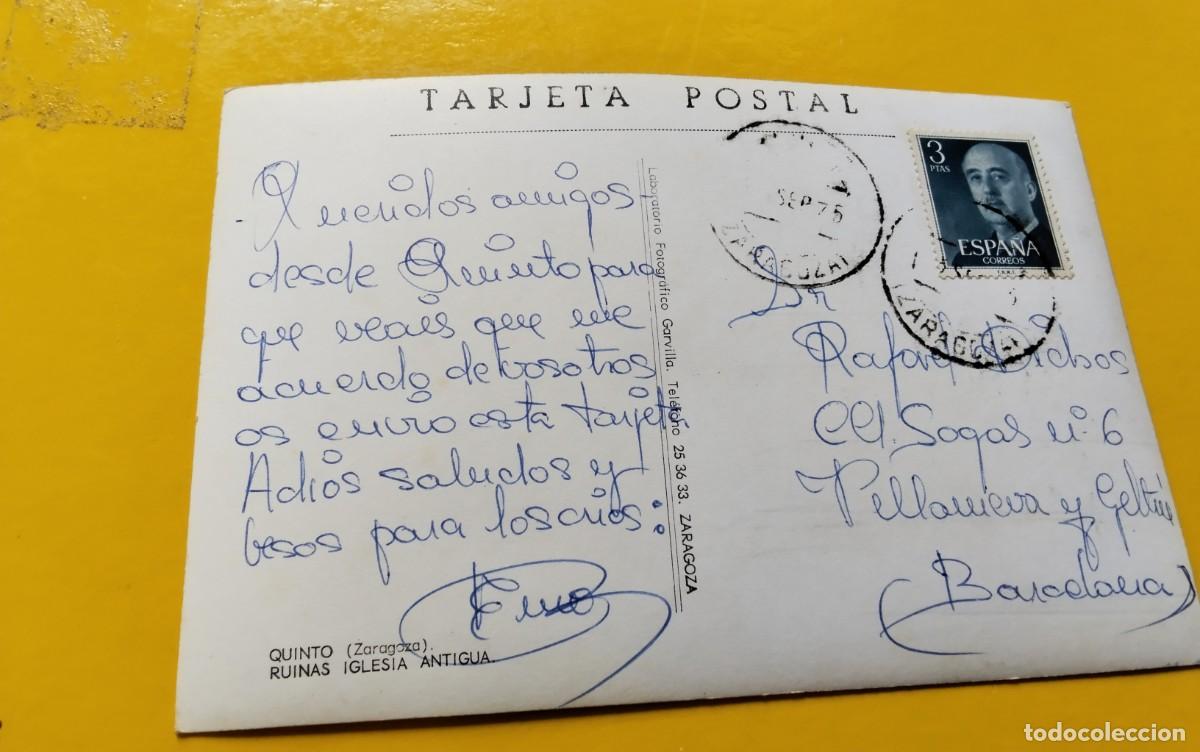 TARJETA POSTAL
Queridos amigos
desde Quinto para
que veais que me
acuerdo de vosotros
os envio esta tarjeta
Adios saludos y
besos para los crios:
QUINTO (Zaragoza).
RUINAS IGLESIA ANTIGUA.
Laboratorio Fotográfico Garvilla. Teléfono 25 36 33. ZARAGOZA
SEP 75
ZARAGOZA
3
PTAS
ESPAÑA
CORREOS
ZARAGOZA
Sr
Rafael
Cl. Sogas nº 6
Villanueva y Geltrú
(Barcelona)
todocoleccion